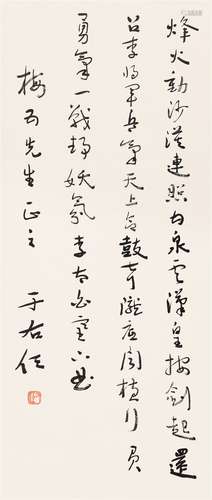 烽火動沙漠連照甘泉雲漢皇按劍起還
召李將軍兵氣天上合鼓聲隴底聞橫行負
勇氣一戰靜妖氛 李太白塞下曲
梅五先生正之 于右任